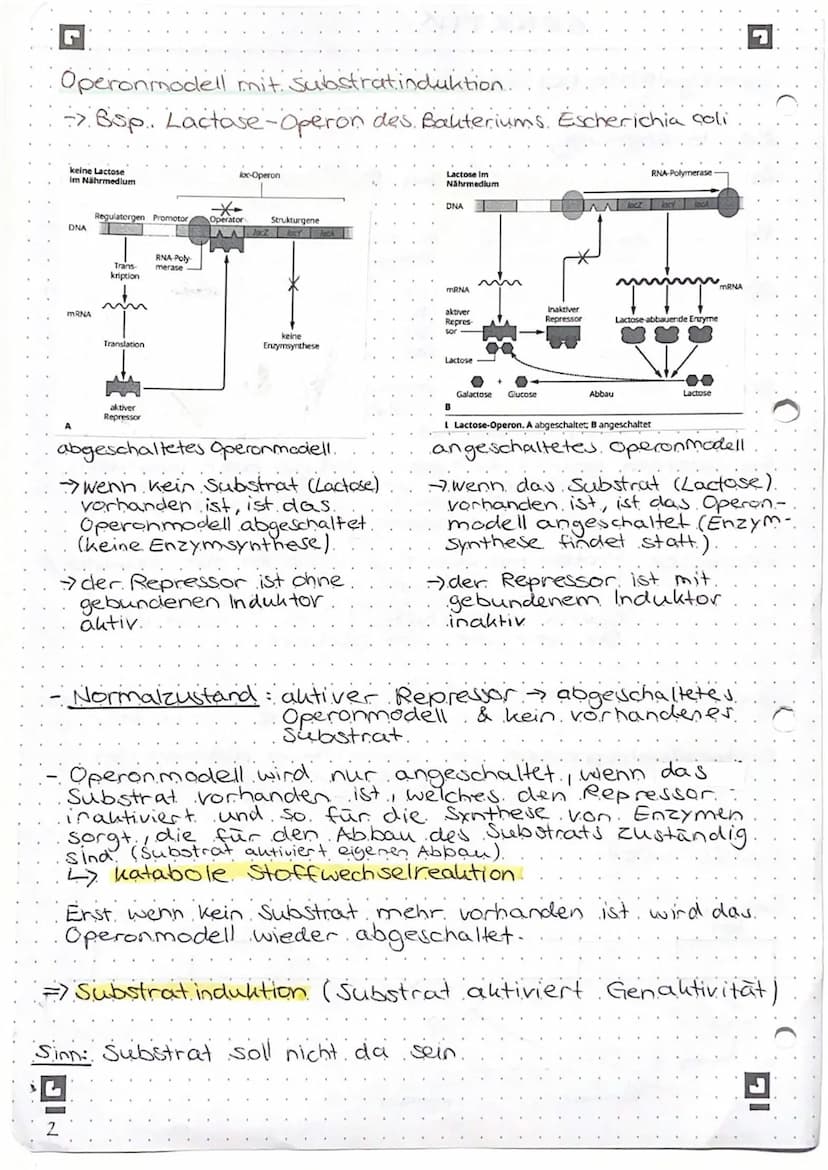 Operonmodell mit Substratinduktion
-> Bsp. Lactase-Operon des Bakteriums Escherichia coli
keine Lactose
im Nährmedium
lac-Operon
Regulatorgen Promotor Operator Strukturgene
DNA
lacZ lacY lacA
RNA-Poly-
merase
Trans-
kription
mRNA
Translation
keine
Enzymsynthese
aktiver
Repressor
A
Lactose im
Nährmedium
RNA-Polymerase
DNA
lacZ lacY lacA
mRNA
mRNA
aktiver
Repres-
sor
inaktiver
Repressor
Lactose-abbauende Enzyme
Lactose
+
Galactose Glucose Abbau Lactose
B
1 Lactose-Operon. A abgeschaltet; B angeschaltet
abgeschaltetes Operonmodell
-> wenn kein Substrat (Lactose)
vorhanden ist, ist das
Operonmodell abgeschaltet
(keine Enzymsynthese)
-> der Repressor ist ohne
gebundenen Induktor
aktiv
angeschaltetes Operonmodell
-> wenn das Substrat (Lactose)
vorhanden ist, ist das Operon-
modell angeschaltet (Enzym-
synthese findet statt)
-> der Repressor ist mit
gebundenem Induktor
inaktiv
- Normalzustand: aktiver Repressor -> abgeschaltetes
Operonmodell & kein vorhandenes
Substrat
- Operonmodell wird nur angeschaltet, wenn das
Substrat vorhanden ist, welches den Repressor
inaktiviert und so für die Synthese von Enzymen
sorgt, die für den Abbau des Substrats zuständig
sind (Substrat aktiviert eigenen Abbau)
↳ katabole Stoffwechselreaktion
Erst wenn kein Substrat mehr vorhanden ist wird das
Operonmodell wieder abgeschaltet.
=> Substratinduktion (Substrat aktiviert Genaktivität)
Sinn: Substrat soll nicht da sein
2